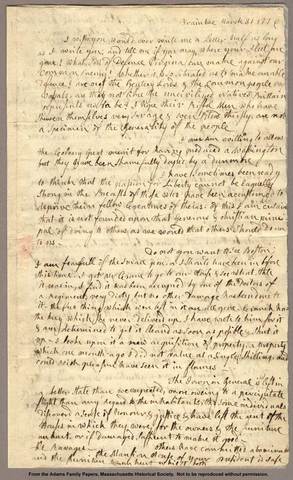 Braintree March 31 1776
I wish you would ever write me a Letter half as long
as I write you; and tell me if you may where your Fleet are
gone? What sort of Defence Virginia can make against our
common Enemy? Whether it is so situated as to make an able
Defence? Are not the Gentery Lords and the common people
vassals, are they not like the uncivilized Natives Brittain
represents us to be? I hope their Riffel Men who have
shewen themselves very savage & even Blood thirsty; are not
a specimen of the Generality of the people.
I am willing to allow
the Colony great merrit for having produced a Washington
but they have been shamefully duped by a Dunmore.
I have sometimes been ready
to think that the passion for Liberty cannot be Eaquelly
Strong in the Breasts of those who have been accustomed to
deprive their fellow Creatures of theirs. Of this I am certain
that it is not founded upon that generous & christian princi
pal of doing to others as we would that others should do un
to us.
Do not you want to see Boston;
I am fearfull of the small pox, or I should have been in before
this time. I got Mr Crane to go to our House & see what state
it was in. I find it has been occupied by one of the Doctors of
a regiment, very dirty, but no other damage has been done to
it. the few things which were left in it are all gone.
the key which he never deliverd up. I have wrote to him for it
& am determined to get it cleand as soon as possible & shut it
up. I look upon it a new acquisition of property, a property
which one month ago I did not value at a single Shilling, and
could with pleasure have seen it in flames.
The Town in General is left in
a better state than we expected, more owing to a percipitate
flight than any Regard to the inhabitants, tho some individuals
discoverd a sense of honour & justice & have left the rent of the
Houses in which they were, for the owners & the furniture
unhurt, or if damaged sufficent to make it good.
others have committed abominab
le Ravages. the Mansion House of your President is safe
and the furniture unhurt whilst both
From the Adams Family Papers, Massachusetts Historical Society. Not to be reproduced without permission.